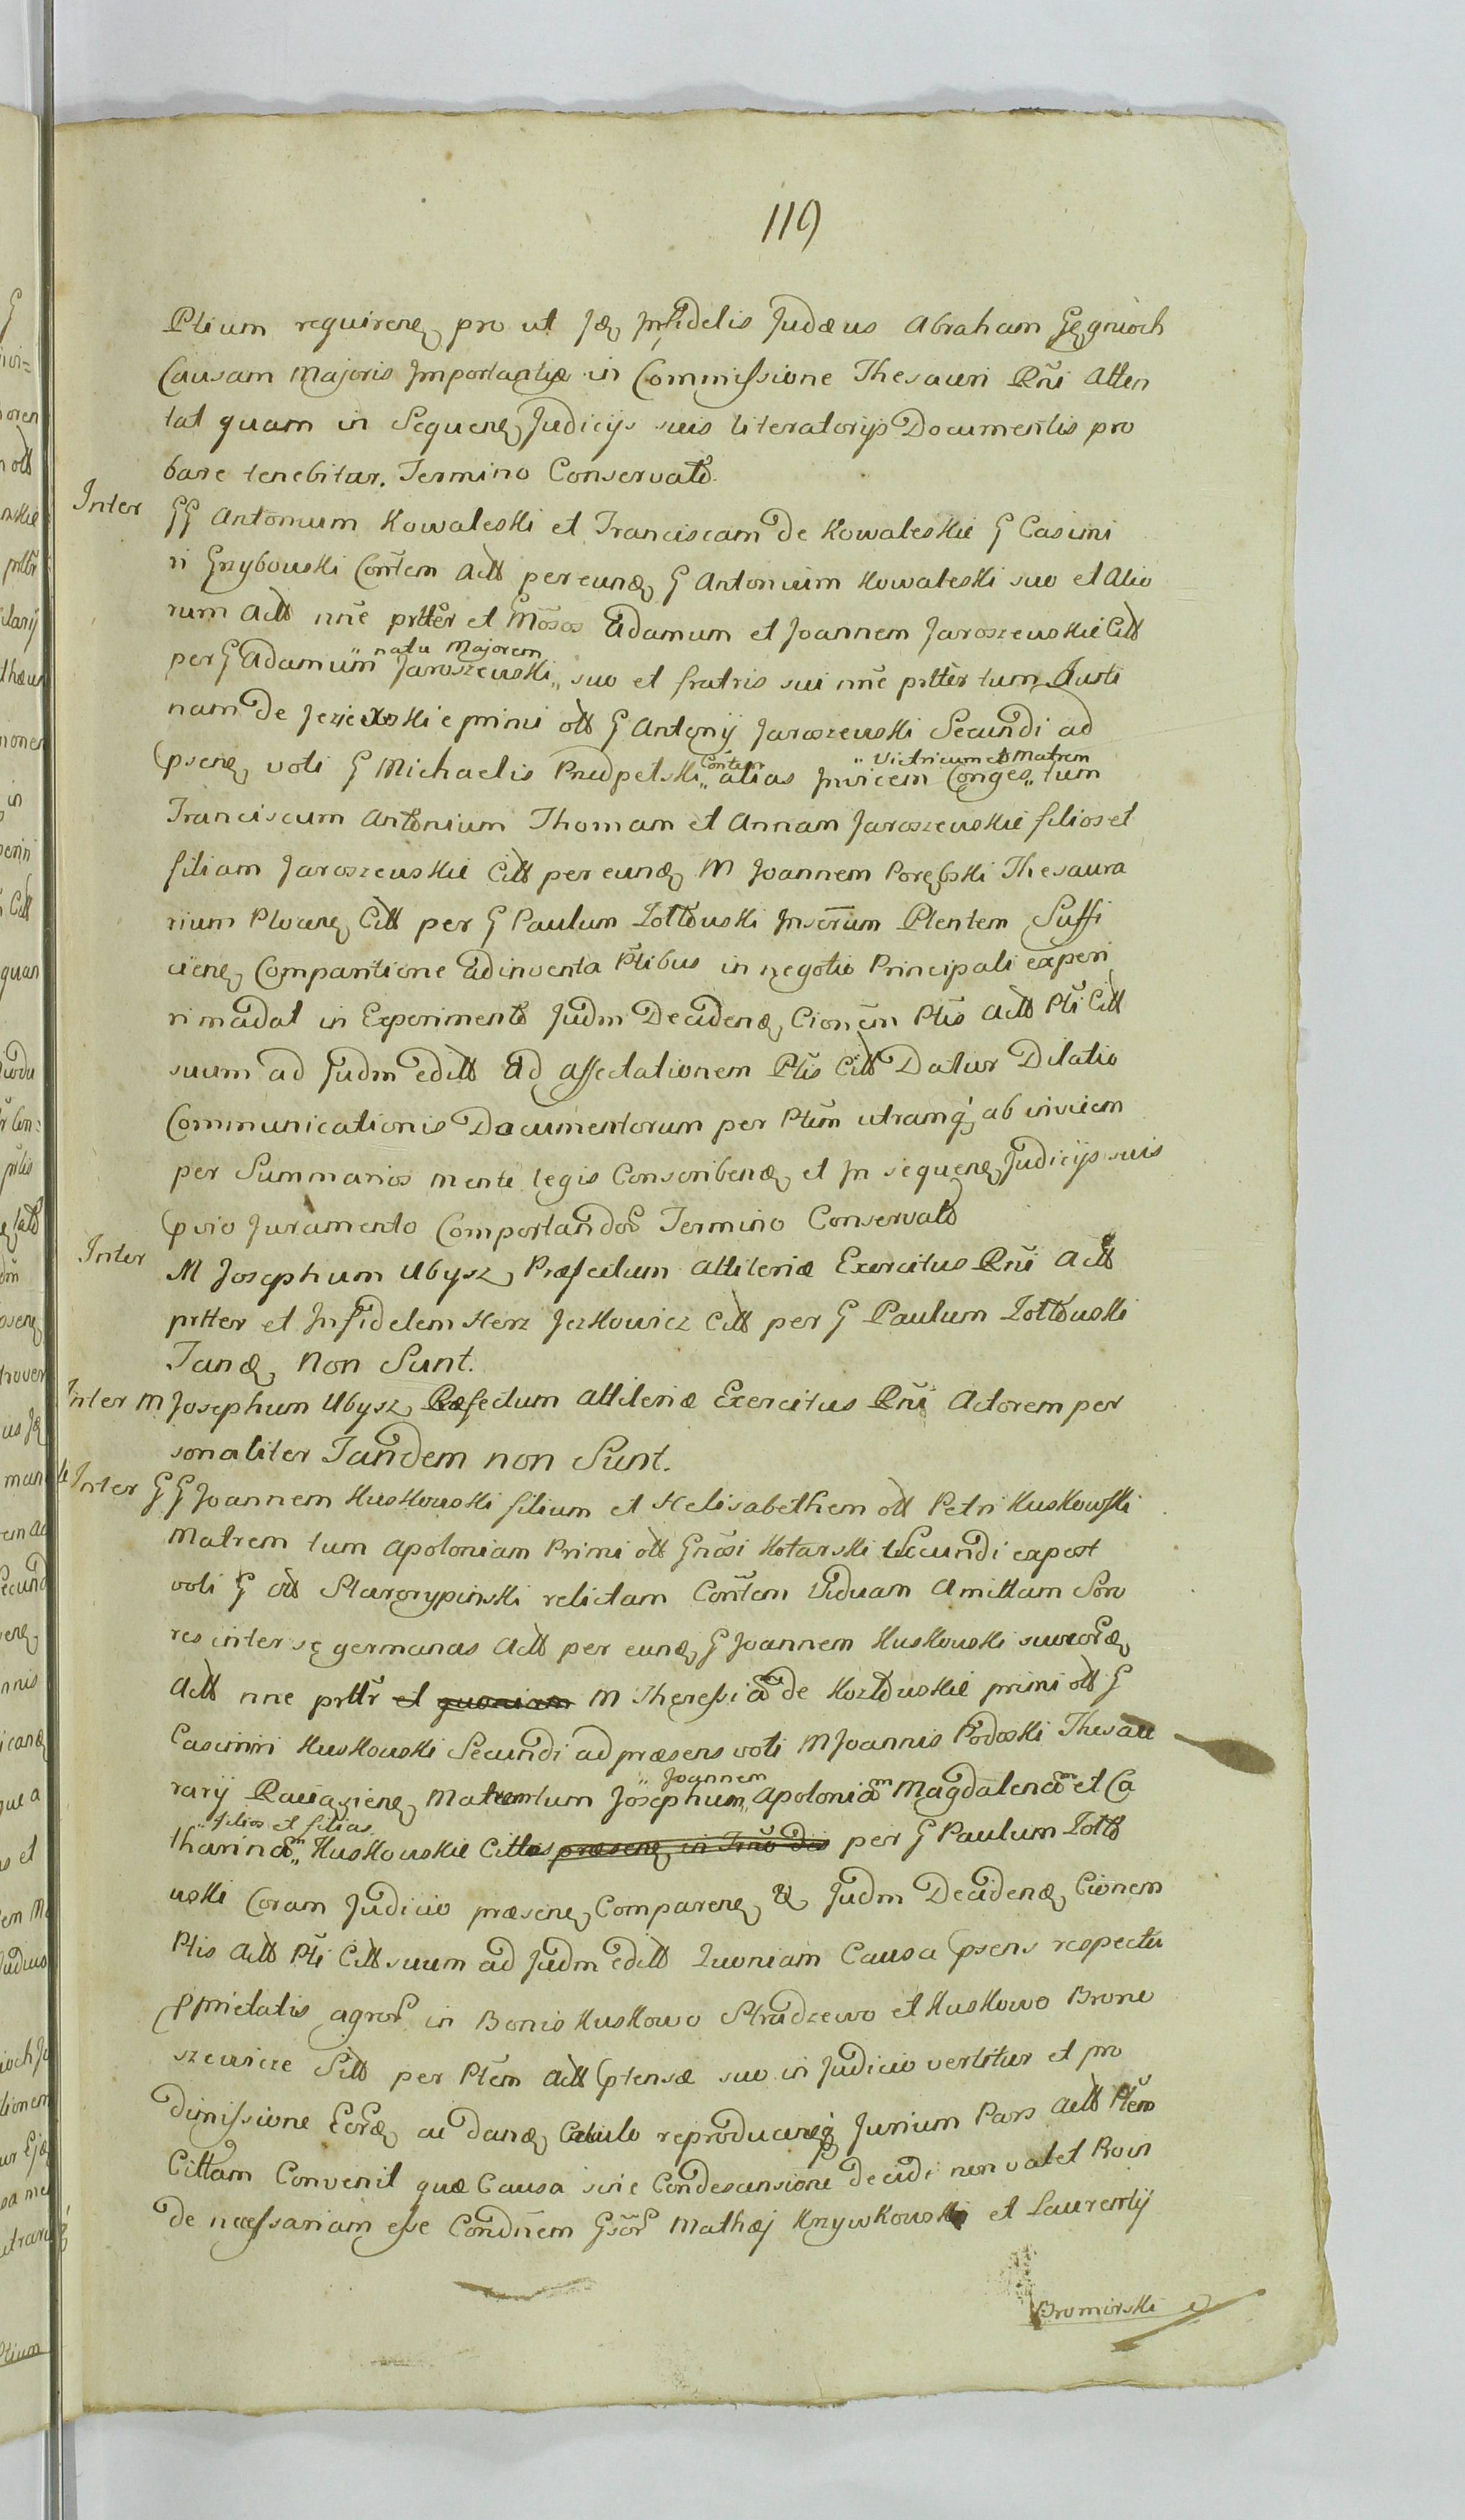 119
Ptium requirene, pro ut Jæ, Infidelis Judæus Abraham
Causam Majoris Importantiæ in Commissione Thesauri Rni Atten
tat quam in Sequene, Judicijs suis literatorijs Documentis pro
bare tenebitur. Termino Conservato.
Inter GG Antonium Kowaleski et Franciscam de Kowaleskie G Casimi
ri Grzybowski Contem Actt per eund, G Antonium Kowaleski suo et Alio
rum Actt nne prtter et Mosos Adamum et Joannem Jaroszewskie Citt
per G Adamum „natu Majorem Jaroszewski„ suo et fratris sui nne prtter tum Justi
nam de primi ott G Antonij Jaroszewski Secundi ad
psene, voti G Michaelis „Contem alias Invicem Conges„ Victricum et Matrem tum
Franciscum Antonium Thomam et Annam Jaroszewskie filios et
filiam Jaroszewskie Citt per eund, M Joannem Porębski Thesaura
rium Plocene, Citt per G Paulum Zottowski Inscrum Plentem Suffi
ciene, Comparitione Adinventa Ptibus in negotio Principali experi
ri madat in Experimento Judm Decidend, Cionem Ptis Actt Pti Citt
suum ad Judm editt Ad Affectationem Ptis Citt Datur Dilatio
Communicationis Documentorum per Ptem utramq, ab invicem
per Summarios mente legis Conscribend, et In sequene, Judicijs suis
pvio Juramento Comportandor Termino Conservato
Inter M Josephum Ubysz, Præfectum Attileriæ Exercitus Rni Actt
prtter et Infidelem Herz Jczkowicz Citt per G Paulum Zottowski
Tand, Non Sunt.
Inter M Josephum Ubysz, Præfectum Attileriæ Exercitus Rni Actorem per
sonaliter Tandem non Sunt.
Inter GG Joannem Kuskowski filium et Helisabethem ott Petri Kuskowski
Matrem tum Apoloniam Primi ott Gnosi Kotarski Secundi expost
voti G ott Starorypinski relictam Contem Viduam Amittam Soro
res inter se germanas Actt per eund, G Joannem Kuskowski suo
Actt nne prttr et quoniam M Theressiam de Kozłowskie primi ott G
Casimiri Kuskowski Secundi ad præsens voti M Joannis Podoski Thesau
rarij Matrem tum Josephum„ „Joannem Apoloniam Magdalenam et Ca
tharinam„ „filios et filias Kuskowskie Cittos præsene, in per G Paulum Zotto
wski Coram Judicio præsene, Comparene, & Judm Decidend, Cionem
Ptis Actt Pti Citt suum ad Judm editt Quoniam Causa psens respectu
pprietatis agror in Bonis Kuskowo Stradzewo et Kuskowo Brone
szewicze Sitt per Ptem Actt ptensæ suo in Judicio vertitur et pro
dimissione ac dand, Calculo Jurium Pars Actt Ptem
Cittam Convenit quæ Causa sine Condescensione decidi non valet Proin
de necessariam esse Condnem Gsor Mathæj Krzywkowski et Laurentij
Bromirski